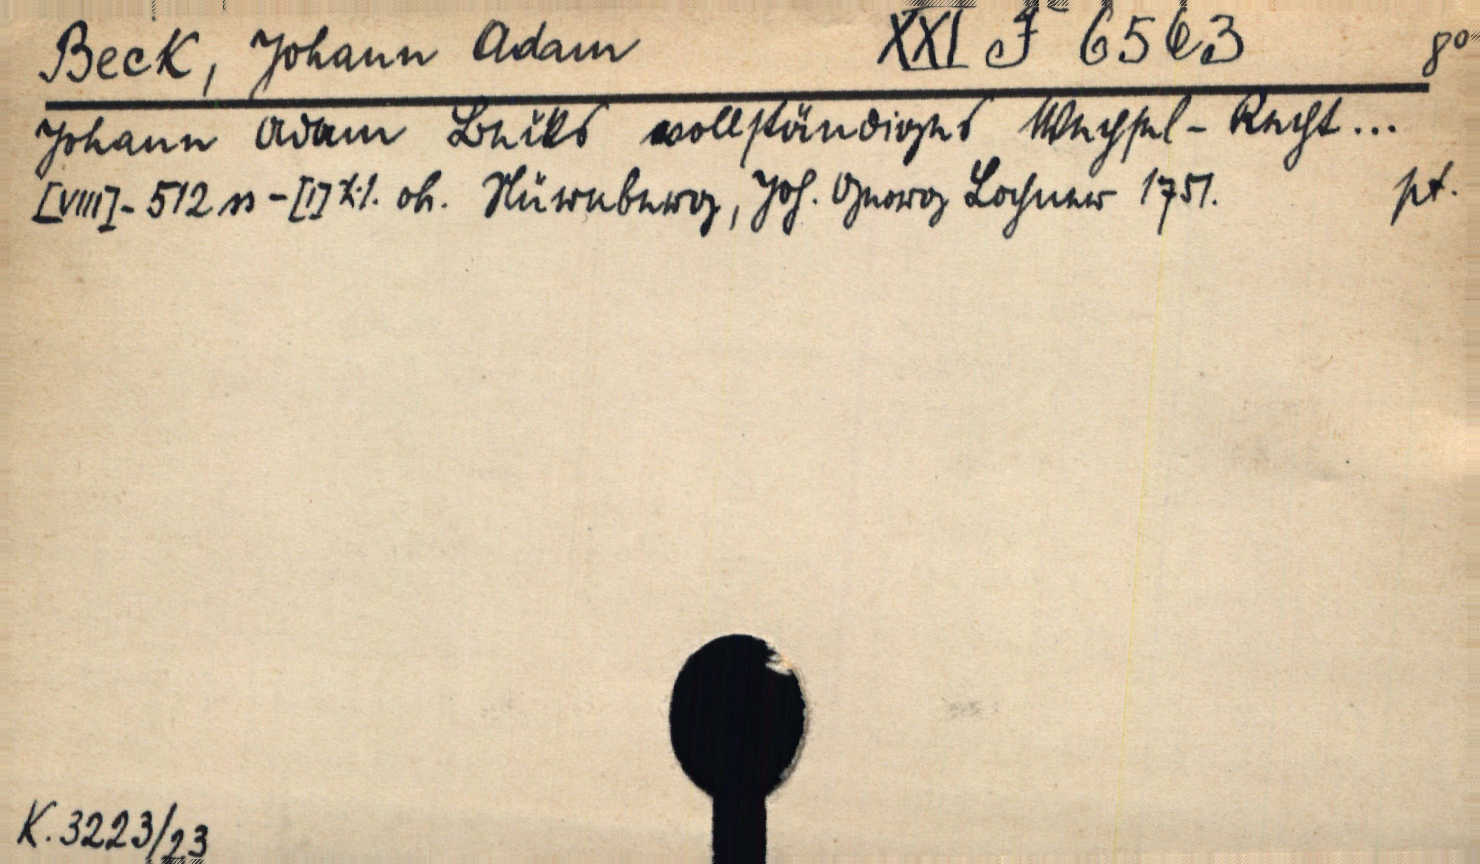 Beck, Johann Adam XXI J 6563 8°
Johann Adam Becks vollständiges Wechsel-Recht...
[VIII]- 512 ss -[1] oh. Nürnberg, Joh. Georg Lochner 1751. pt.
K. 3223/23